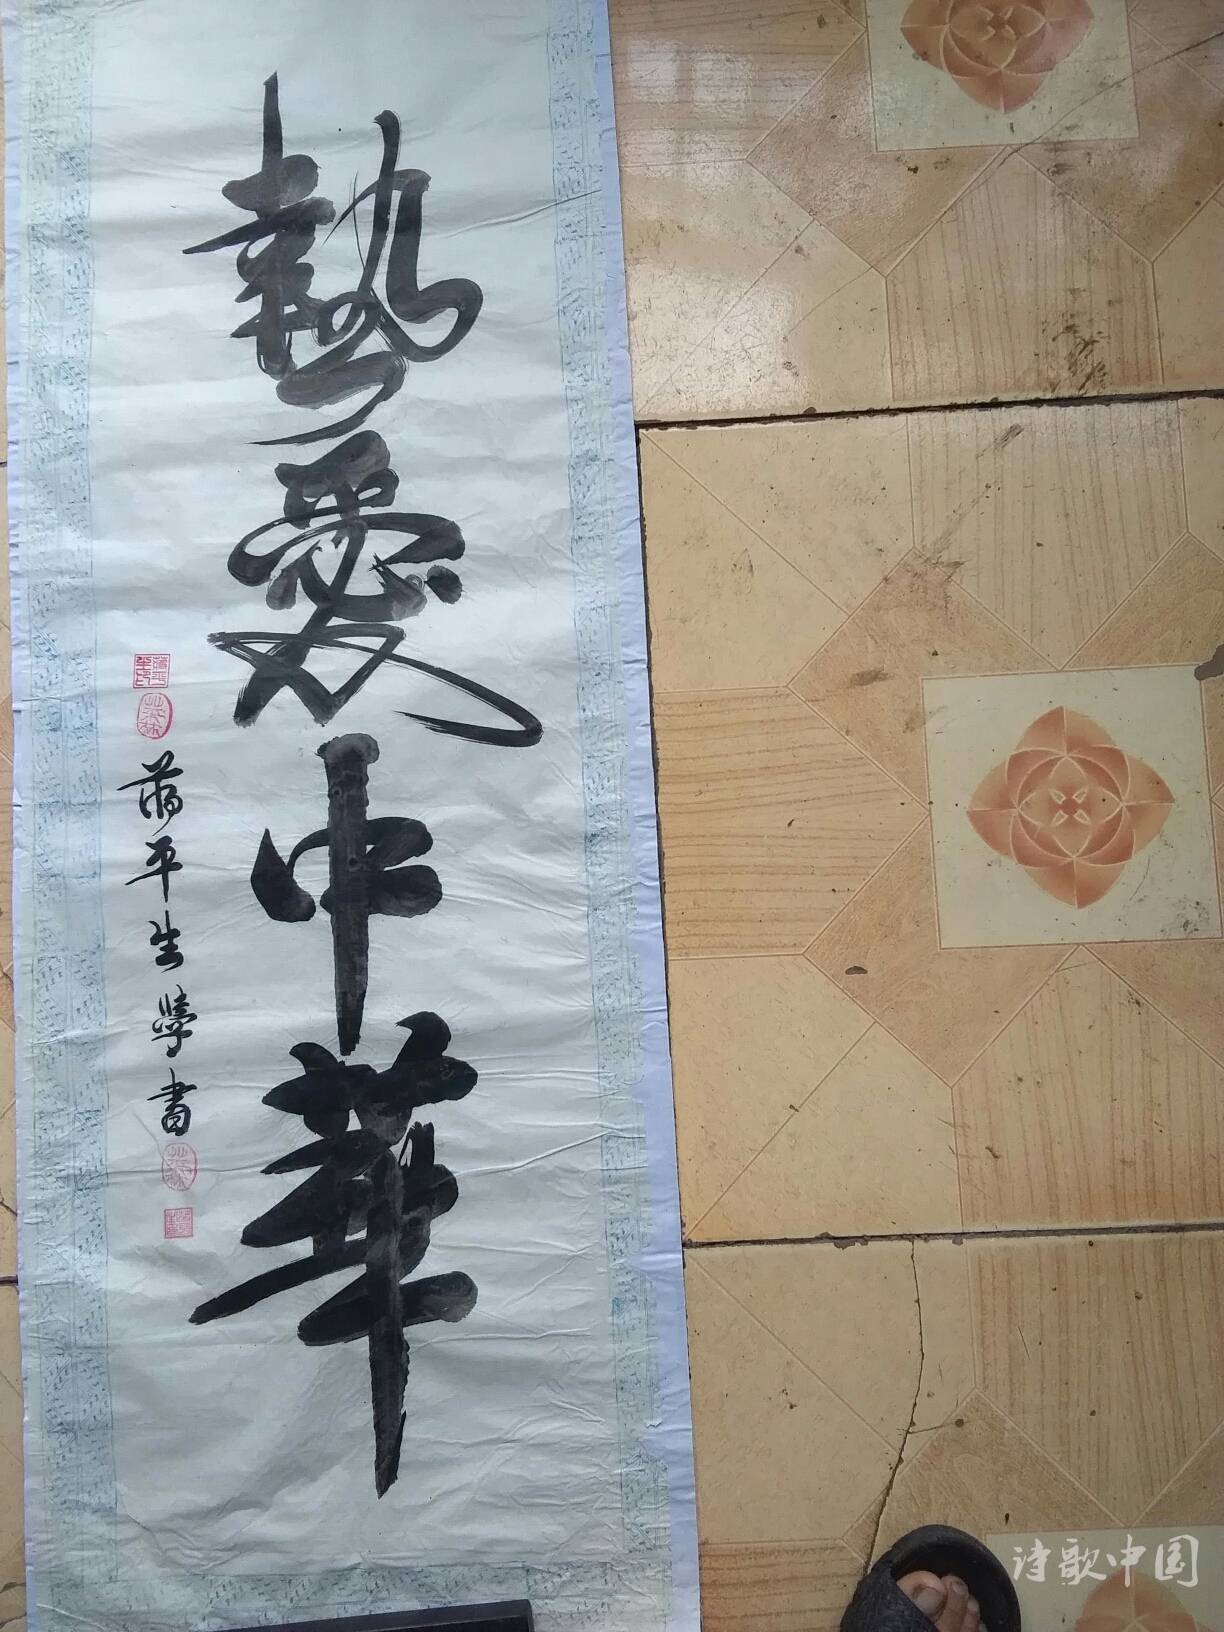 熱愛中華
蒲平生學書
诗歌中国